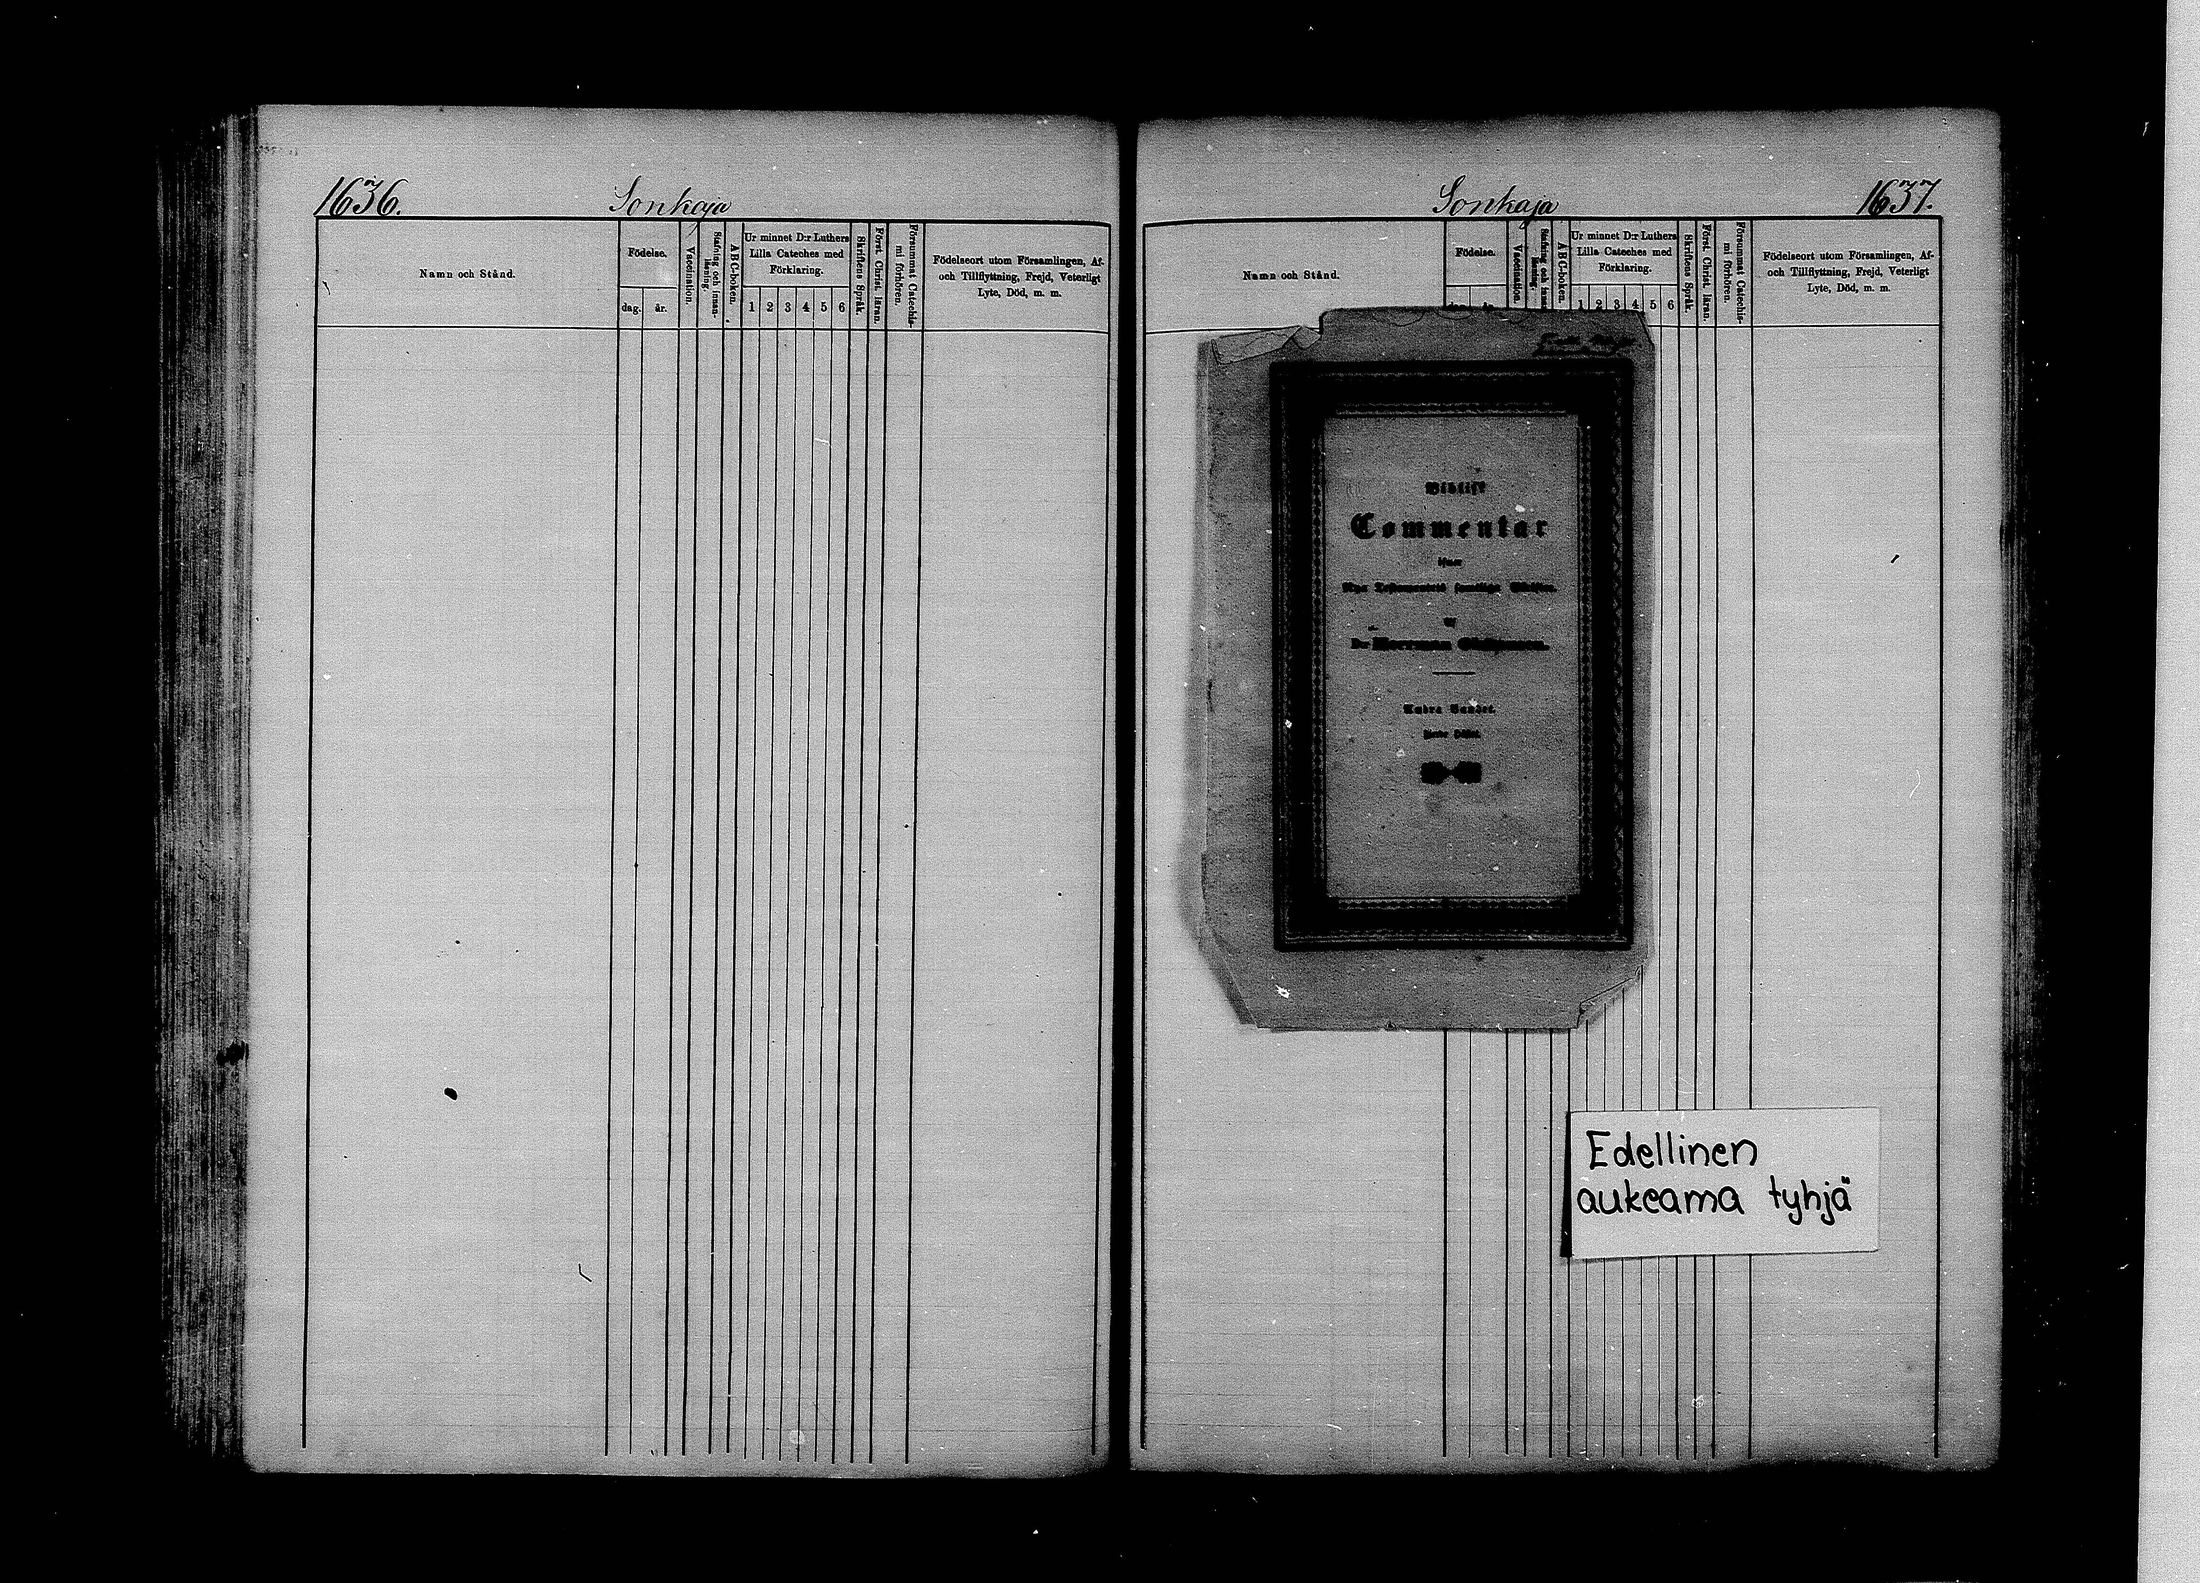 1636.
Sonkaja
Namn och Stånd.
Födelse.
dag.
år.
Vaccination.
Stafning och innan-
läsning.
ABC-boken.
Ur minnet D:r Luthers
Lilla Cateches med
Förklaring.
1 2 3 4 5 6
Skriftens Språk.
Först. Christ. läran.
Försummat Catechis-
mi förhören.
Födelseort utom Församlingen, Af-
och Tillflyttning, Frejd, Veterligt
Lyte, Död, m. m.
Sonkaja
1637.
Namn och Stånd.
Födelse.
Vaccination.
Stafning och innan-
läsning.
ABC-boken.
Ur minnet D:r Luthers
Lilla Cateches med
Förklaring.
1 2 3 4 5 6
Skriftens Språk.
Först. Christ. läran.
Försummat Catechis-
mi förhören.
Födelseort utom Församlingen, Af-
och Tillflyttning, Frejd, Veterligt
Lyte, Död, m. m.
Biblisk
Commentar
öfwer
Nya Testamentets samtliga
af
Dr Herrman Olshausen.
Andra Bandet.
Edellinen
aukeama tyhjä